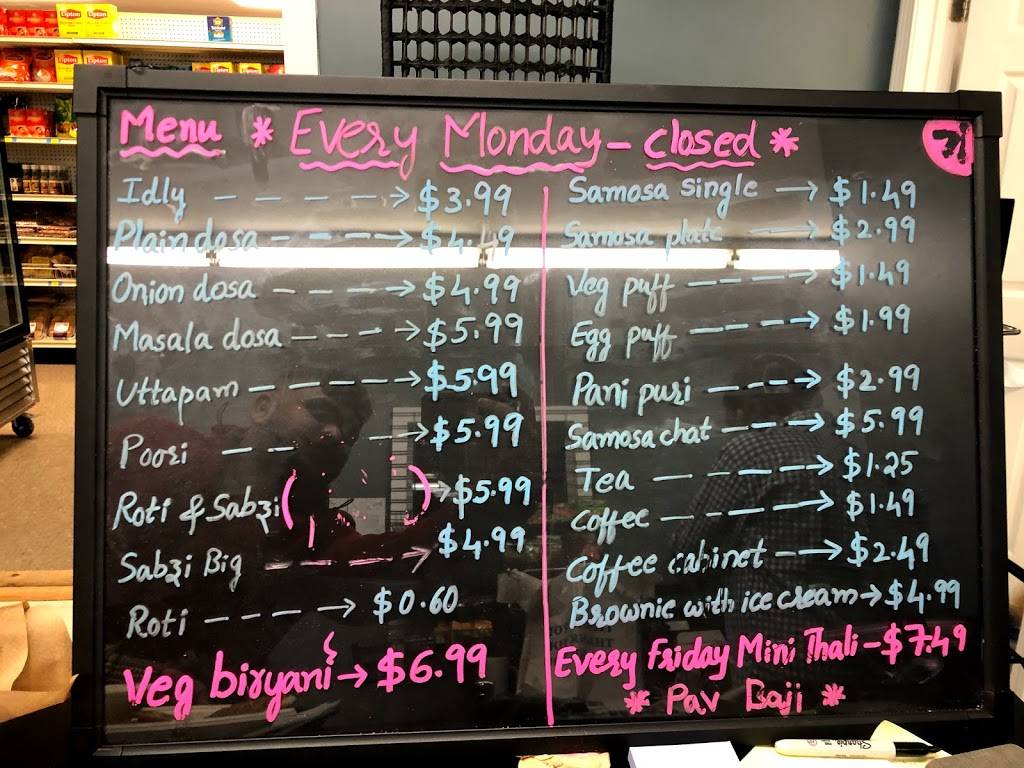 Menu * Every Monday - closed *
Idly - - - - -> $3.99
Plain dosa - - - -> $4.49
Onion dosa - - - -> $4.99
Masala dosa - - - -> $5.99
Uttapam - - - - -> $5.99
Poori - - -> $5.99
Roti & Sabzi ( ) -> $5.99
Sabzi Big - - - -> $4.99
Roti - - - -> $0.60
Veg biryani -> $6.99
Samosa single -> $1.49
Samosa plate -> $2.99
Veg puff - - - -> $1.49
Egg puff - - - -> $1.99
Pani puri - - -> $2.99
Samosa chat - - -> $5.99
Tea - - - - -> $1.25
Coffee - - - - -> $1.49
Coffee cabinet - -> $2.49
Brownie with ice cream -> $4.99
Every Friday Mini Thali - $7.49
* Pav Baji *
Lipton
Lipton
Lipton
Sharpie